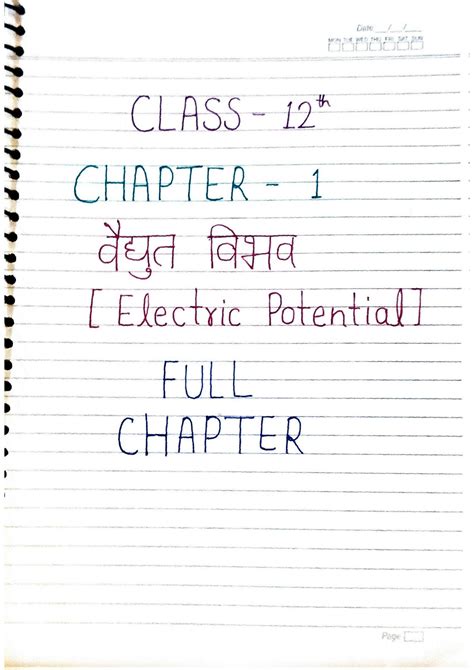 Date __/__/__
MON TUE WED THU FRI SAT SUN
CLASS - 12th
CHAPTER - 1
वैद्युत विभव
[Electric Potential]
FULL
CHAPTER
Page